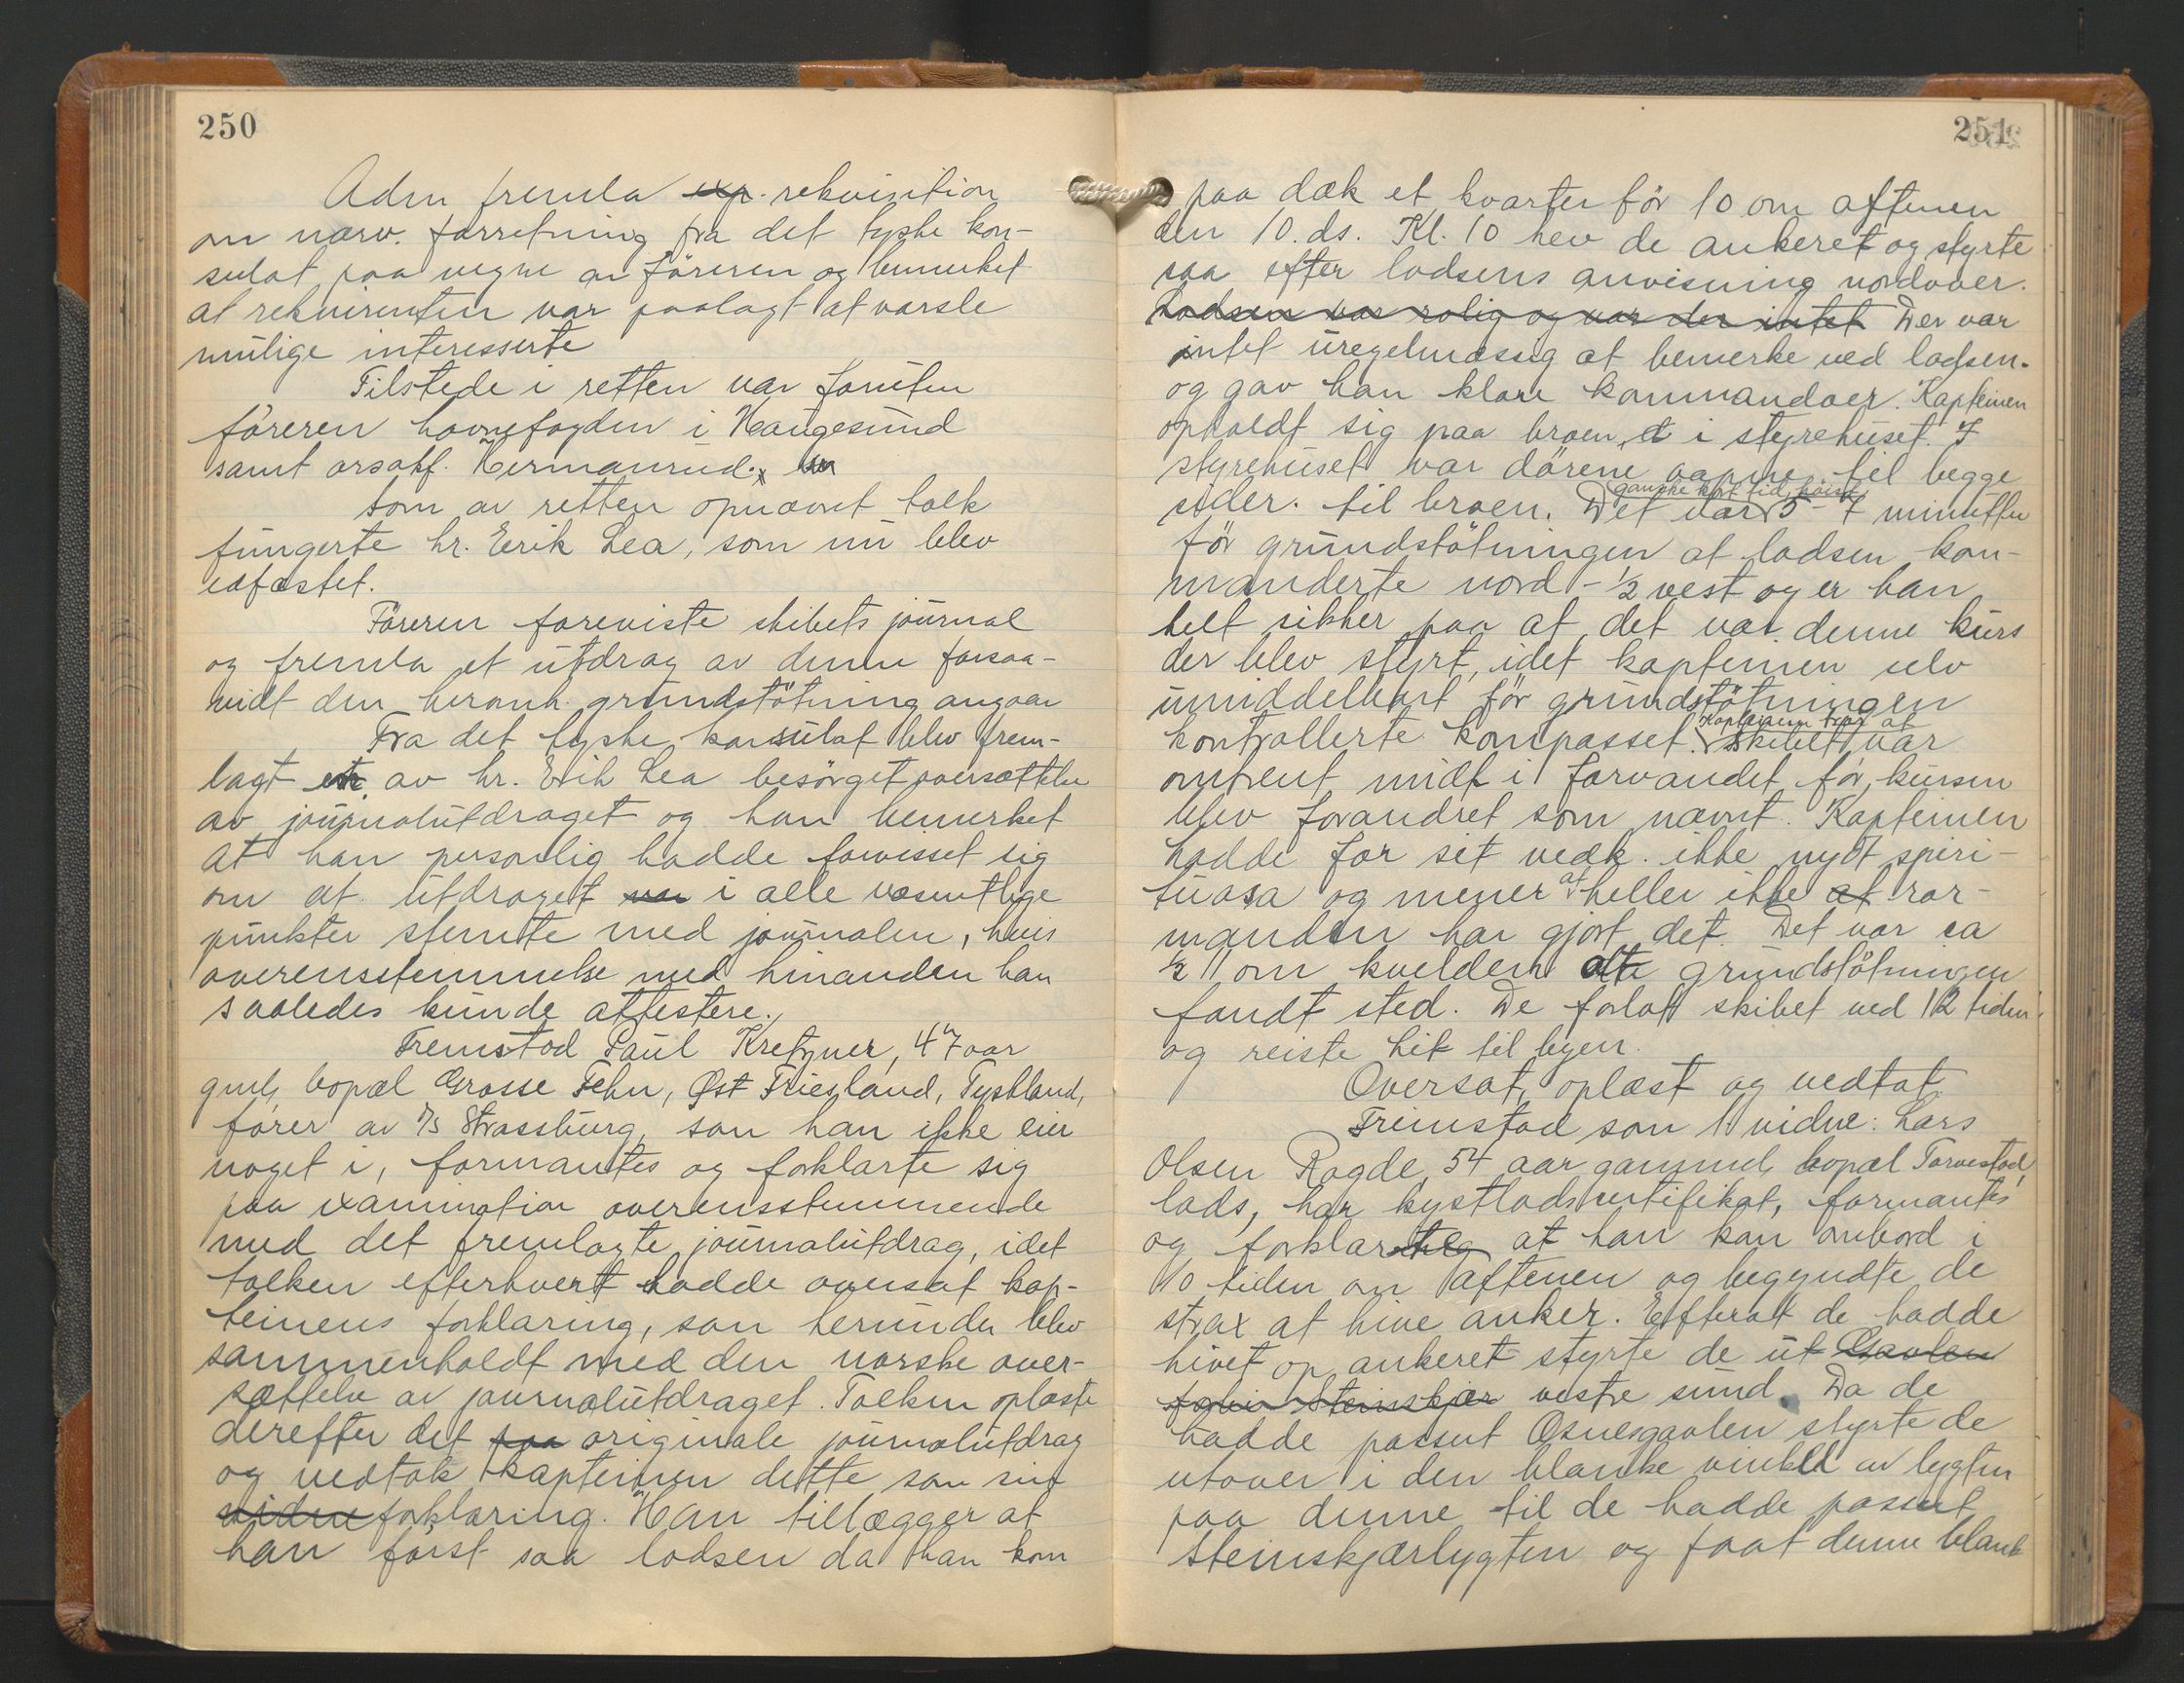 250
Adm fremla exp. rekvisition
om nærv. forretning fra det tyske kon-
sulat paa vegne av föreren og bemerket
at rekvirenten var paalagt at varsle
mulige interesserte
Tilstede i retten var foruten
föreren havnefogden i Haugesund
samt orsakf. Hermansrud.
Som av retten opnævnt tolk
fungerte hr. Eerik Lea, som nu blev
edfæstet.
Föreren foreviste skibets journal
og fremla et utdrag av denne forsaa-
vidt den heromh. grundstötning angaar
Fra det tyske konsulat blev frem-
lagt en av hr. Erik Lea besörget oversættelse
av journalutdraget og han bemerket
at han personlig hadde forvisset sig
om at utdraget var i alle væsentlige
punkter stemte med journalen, hvis
overensstemmelse med hinanden han
saaledes kunde attestere.
Fremstod Paul Kretzner, 47 aar
gml, bopæl Grosse Fehn, Øst Friesland, Tyskland,
förer av D/S Strassburg, som han ikke eier
noget i, formantes og forklarte sig
paa examination overensstemmende
med det fremlagte journalutdrag, idet
tolken efterhvert hadde oversat kap-
teinens forklaring, som herunder blev
sammenholdt med den norske over-
sættelse av journalutdraget. Tolken oplæste
derefter det paa originale journalutdrag
og vedtok kapteinen dette som sin
vidne forklaring. Han tillægger at
han först saa lodsen da han kom
251
paa dæk et kvarter för 10 om aftenen
den 10. ds. Kl. 10 hev de ankeret og styrte
saa efter lodsens anvisning nordover.
Lodsen var rolig og var der intet Der var
intet uregelmæssig at bemerke ved lodsen.
og gav han klare kommandoer. Kapteinen
opholdt sig paa broen, d i styrehuset. I
styrehuset var dörene aapne til begge
sider. til broen. Det var 5 - 7 minutter
ganske kort tid, höist
för grundstötningen at lodsen kom-
manderte nord - ½ vest og er han
helt sikker paa at det var denne kurs
der blev styrt, idet kapteinen selv
umiddelbart för grundstötningen
kontrollerte kompasset. Skibet var
Kapteinen tror at
omtrent midt i farvandet för kursen
blev forandret som nævnt. Kapteinen
hadde for sit vedk. ikke nydt spiri-
tuosa og mener at heller ikke at ror-
manden har gjort det. Det var ca
½ 11 om kvelden at grundstötningen
fandt sted. De forlot skibet ved 12 tiden
og reiste hit til byen.
Oversat, oplæst og vedtat
Fremstod som 1 vidne: Lars
Olsen Ragde, 54 aar gammel, bopæl Torvestad,
lods, har kystlodscertifikat, formantes
og forklarte at han kom ombord i
10 tiden om aftenen og begyndte de
strax at hive anker. Efterat de hadde
hivet op ankeret styrte de ut Gavlen
Steinskjær vestre sund. Da de
hadde passert Osnesgavlen styrte de
utover i den blanke vinkel av lygten
paa denne til de hadde passert
Steinskjærlygten og faat denne blank